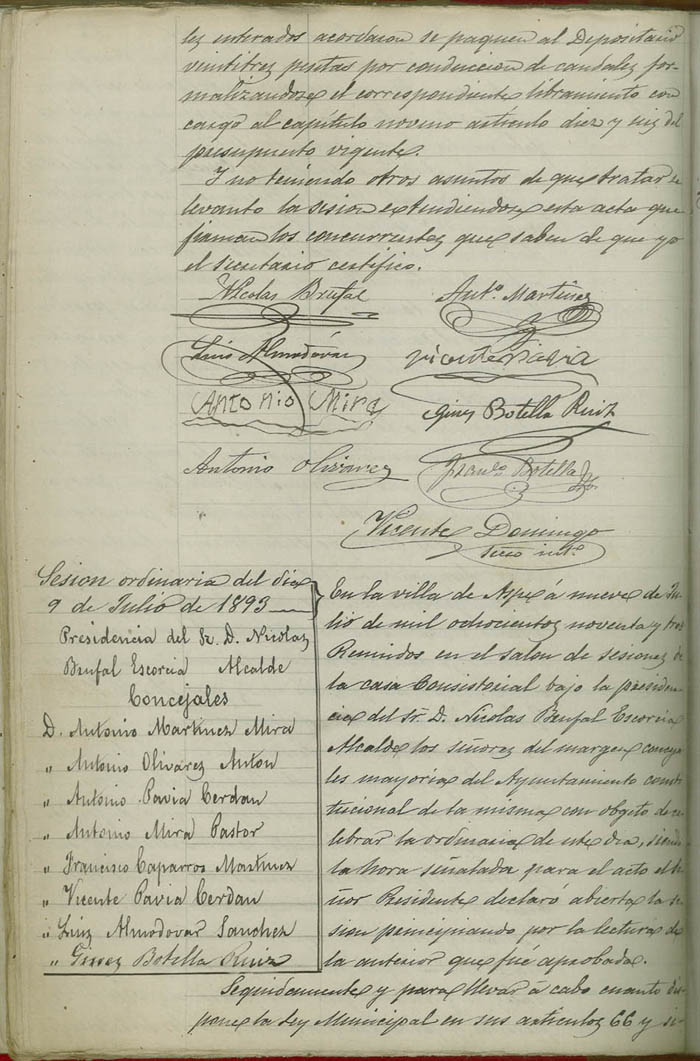 les enterados acordaron se paguen al Depositario
veintitres pesetas por conduccion de caudales for-
malizandose el correspondiente libramiento con
cargo al capítulo noveno articulo diez y seis del
presupuesto vigente.
Y no teniendo otros asuntos de que tratar se
levanto la sesion extendiendose esta acta que
firman los concurrentes que saben de que yo
el secretario certifico.
Nicolas Brufal
Antº. Martinez
Luis Almodóvar
Vicente Pavia
Antonio Mira
Gines Botella Ruiz
Antonio Olivarez
Franco. Botella
Vicente Domingo
Srio intº.
Sesion ordinaria del dia
9 de Julio de 1893
Presidencia del Sr. D. Nicolas
Brufal Escorcia Alcalde
Concejales
D. Antonio Martinez Mira
" Antonio Olivarez Anton
" Antonio Pavia Cerdan
" Antonio Mira Pastor
" Francisco Caparros Martinez
" Vicente Pavia Cerdan
" Luiz Almodovar Sanchez
" Ginez Botella Ruiz
En la villa de Aspe á nueve de Ju-
lio de mil ochocientos noventa y tres
Reunidos en el salon de sesiones de
la casa Consistorial bajo la presiden-
cia del Sr. D. Nicolas Brufal Escorcia
Alcalde los señores del margen conceja-
les mayoria del Ayuntamiento consti-
tucional de la misma con obgeto de ce-
lebrar la ordinaria de este dia, siendo
la hora señalada para el acto el Se-
ñor Presidente declaró abierta la se-
sion principiando por la lectura de
la anterior que fué aprobada.
Seguidamente y para llevar á cabo cuanto dis-
pone la Ley Municipal en sus articulos 66 y si-